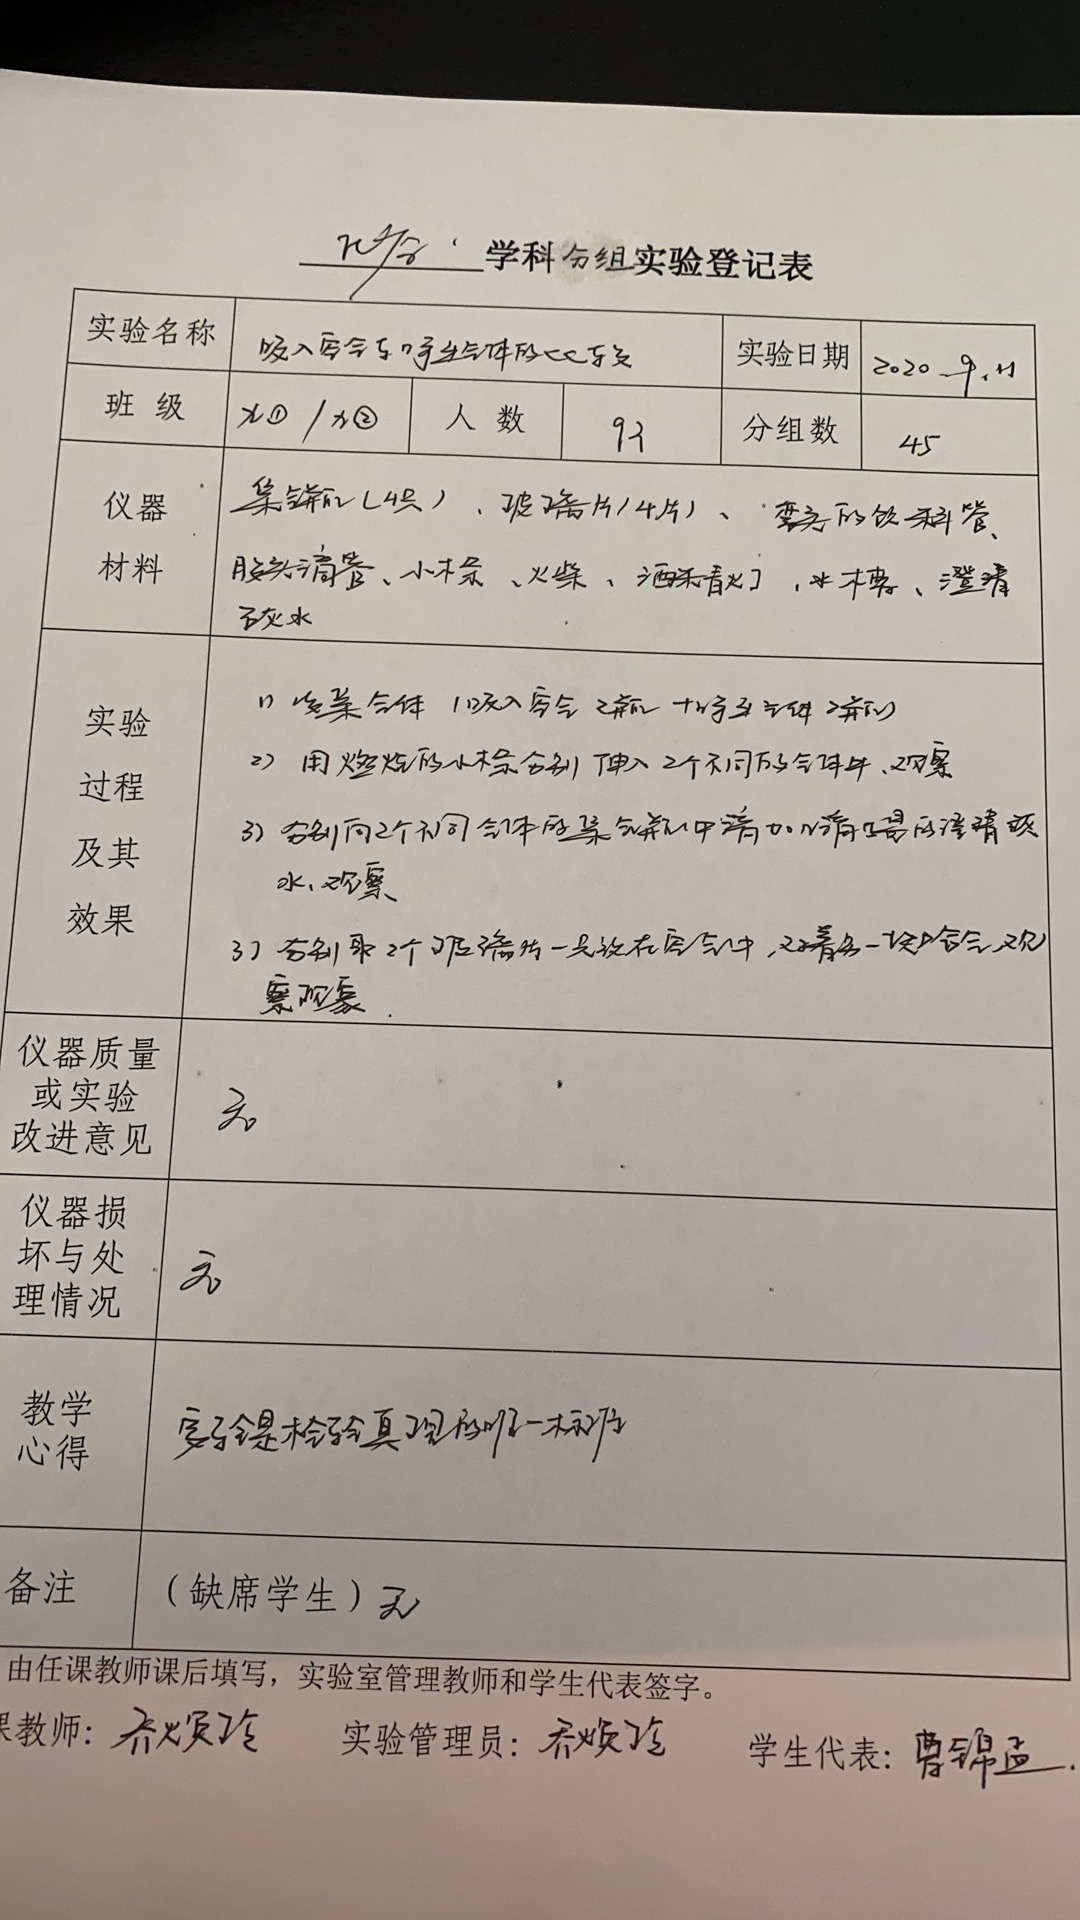 化学 学科分组实验登记表
实验名称 吸入空气与呼出气体的比较 实验日期 2020.9.11
班 级 九① /九② 人 数 92 分组数 45
仪器 集气瓶(4只)、玻璃片(4片)、弯头的饮料管、
材料 胶头滴管、小木条、火柴、酒精灯、水槽、澄清
石灰水
实验
过程
及其
效果
1) 收集气体(吸入空气2瓶 十呼出气体2瓶)
2) 用燃烧的小木条分别伸入2个不同的气体中、观察
3) 分别向2个不同气体的集气瓶中滴加几滴的澄清灰
水、观察
3) 分别取2个玻璃片一块放在空气中,对着另一块哈气、观
察现象.
仪器质量
或实验
改进意见
无
仪器损
坏与处
理情况
无
教学
心得
实验是检验真理的唯一标准
备注 (缺席学生)无
由任课教师课后填写,实验室管理教师和学生代表签字。
课教师: 乔焕玲 实验管理员: 乔焕玲 学生代表: 曹锦